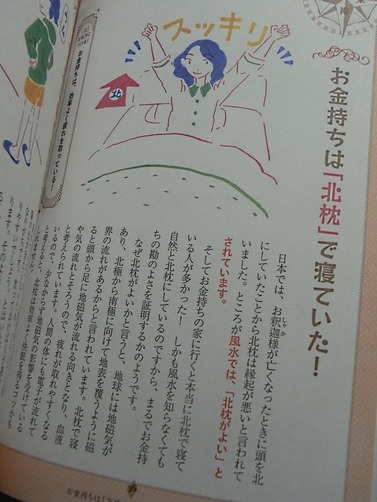 お金持ちは「北枕」で寝ていた！
スッキリ
北
日本では、お釈迦様が亡くなったときに頭を北
しゃか
にしていたことから北枕は縁起が悪いと言われて
いました。ところが風水では、「北枕がよい」と
されています。
そしてお金持ちの家に行くと本当に北枕で寝て
いる人が多かった！　しかも風水を知らなくても
自然と北枕にしているのですから、まるでお金持
ちの勘のよさを証明するかのようです。
なぜ北枕がよいかと言うと、地球には地磁気が
あり、北極から南極に向けて地表を覆うように磁
界の流れがあるからと言われています。北枕で寝
ると頭から足に地磁気が流れる向きとなり、血液
や気の流れとそろうので、疲れが取れやすくなる
と考えられています。人間の体にも電子が流れて
いるので、少なからず地磁気の影響を受けている
お金持ちは、効率よく疲れを取っている！
お金持ちは「